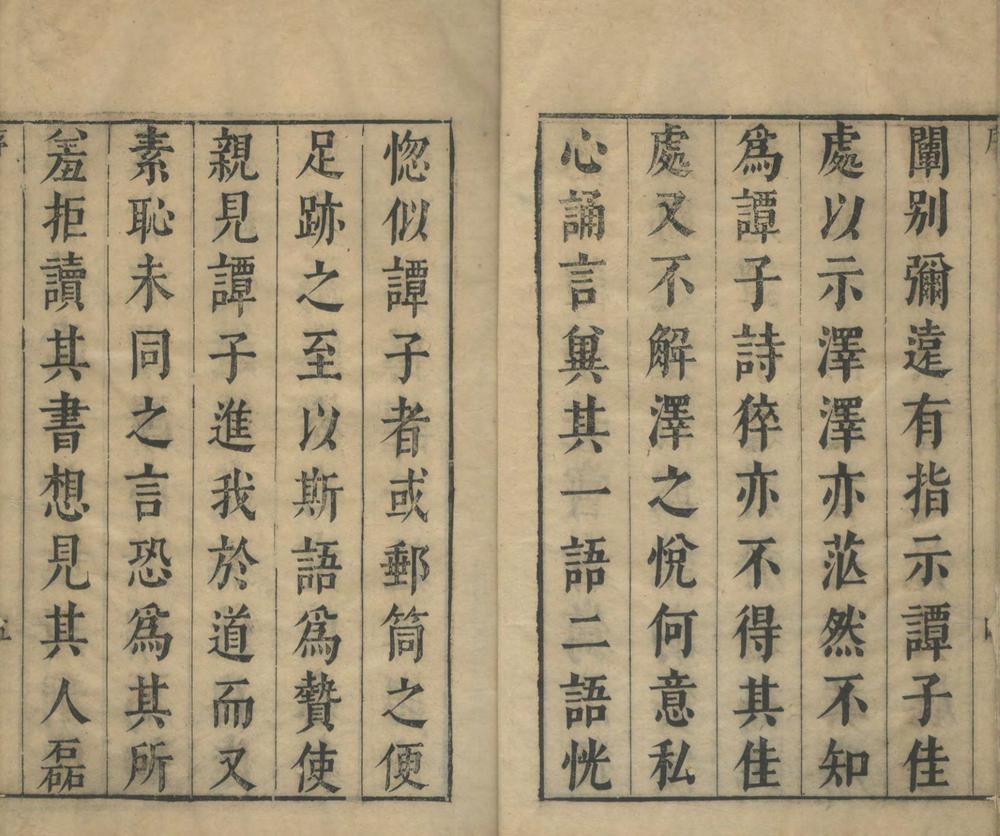 闡別彌遠有指示譚子佳
處以示澤澤亦茫然不知
為譚子詩猝亦不得其佳
處又不解澤之悅何意私
心誦言與其一語二語恍
惚似譚子者或郵筒之便
足跡之至以斯語為贄使
親見譚子進我於道而又
素恥未同之言恐為其所
羞拒讀其書想見其人磊